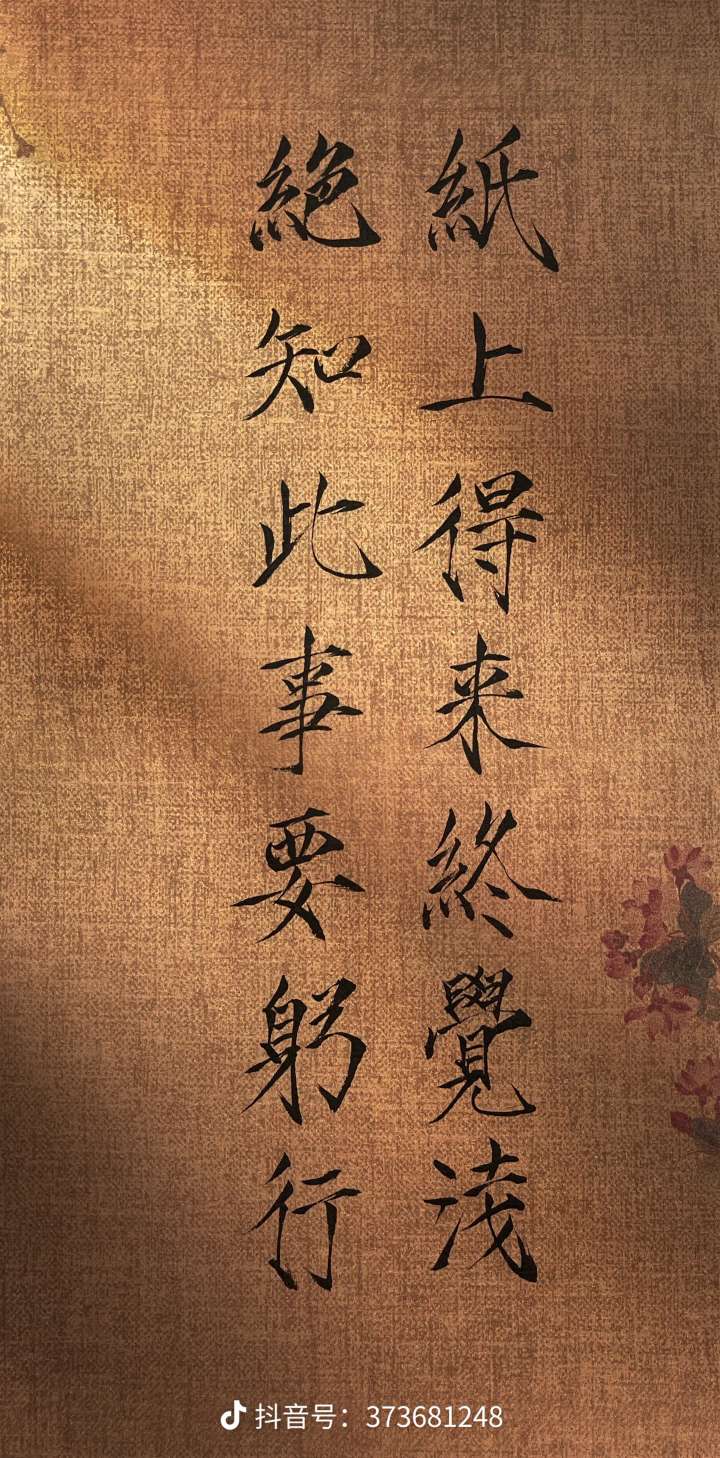 紙上得来終覺浅
絶知此事要躬行
抖音号：373681248